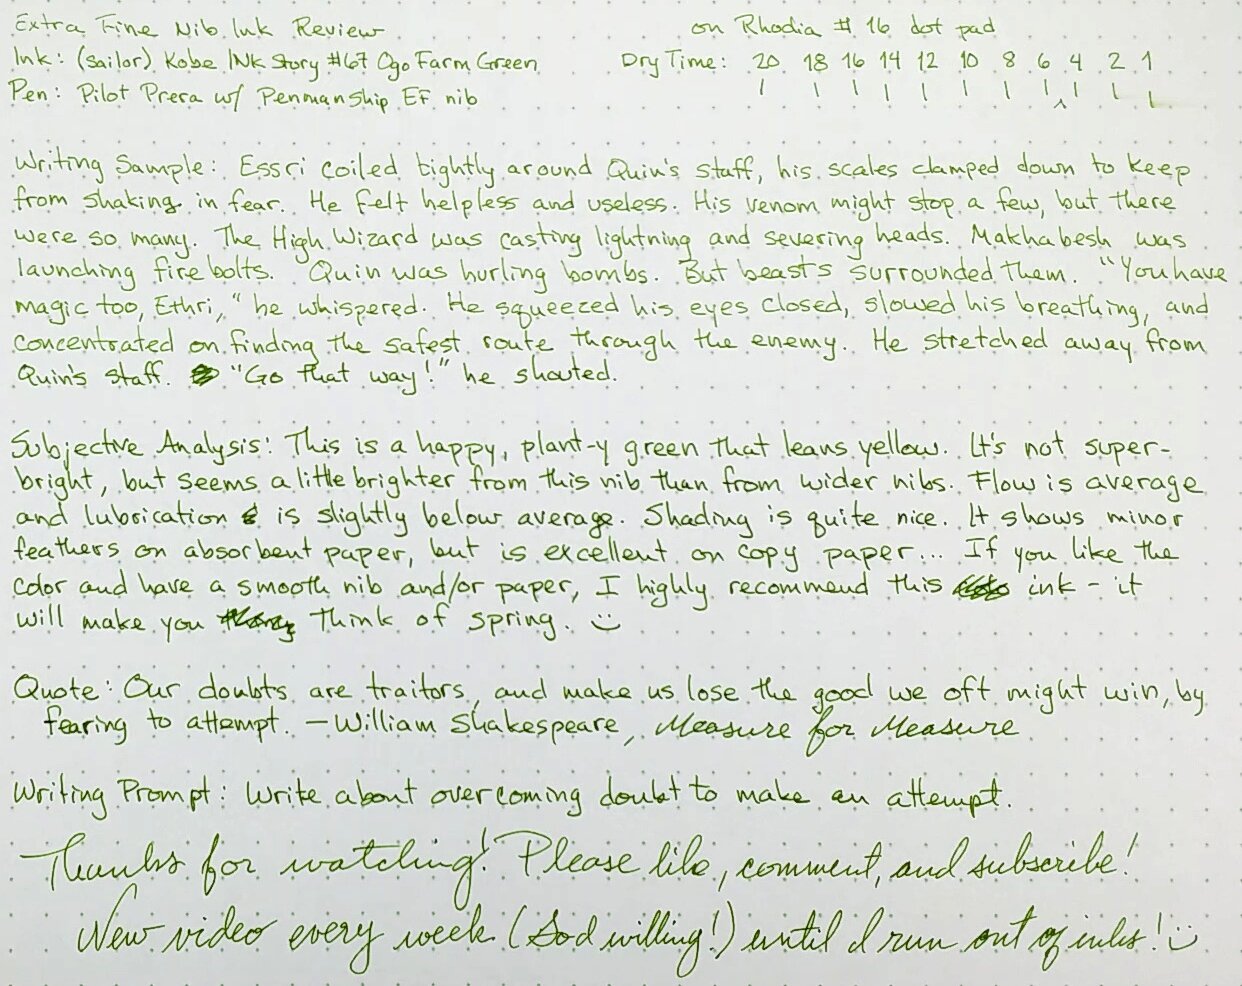 Extra Fine Nib Ink Review
on Rhodia # 16 dot pad
Ink: (Sailor) Kobe INK Story #67 Ogo Farm Green
Dry Time: 20 18 16 14 12 10 8 6 4 2 1
Pen: Pilot Prera w/ Penmanship EF nib
Writing Sample: Essri coiled tightly around Quin's staff, his scales clamped down to keep
from shaking in fear. He felt helpless and useless. His venom might stop a few, but there
were so many. The High Wizard was casting lightning and severing heads. Makhabesh was
launching fire bolts. Quin was hurling bombs. But beasts surrounded them. "You have
magic too, Ethri," he whispered. He squeezed his eyes closed, slowed his breathing, and
concentrated on finding the safest route through the enemy. He stretched away from
Quin's staff. "Go that way!" he shouted.
Subjective Analysis: This is a happy, plant-y green that leans yellow. It's not super-
bright, but seems a little brighter from this nib than from wider nibs. Flow is average
and lubrication is slightly below average. Shading is quite nice. It shows minor
feathers on absorbent paper, but is excellent on copy paper... If you like the
color and have a smooth nib and/or paper, I highly recommend this ink - it
will make you think of spring. :)
Quote: Our doubts are traitors, and make us lose the good we oft might win, by
fearing to attempt. —William Shakespeare, Measure for Measure
Writing Prompt: Write about overcoming doubt to make an attempt.
Thanks for watching! Please like, comment, and subscribe!
New video every week (God willing!) until I run out of inks! :)